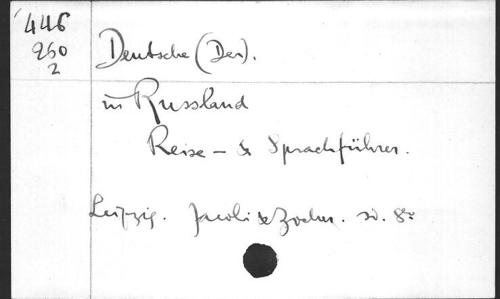 446
260
2
Deutsche (Der).
in Russland
Reise - & Sprachführer.
Leipzig. Jacobi & Zocher. sd. 8º